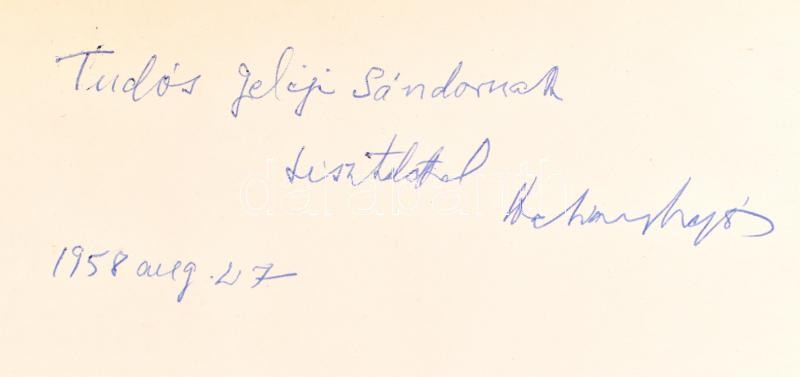 Tudós Geleji Sándornak
tisztelettel
Hatvany Lajos
1958 aug. 27